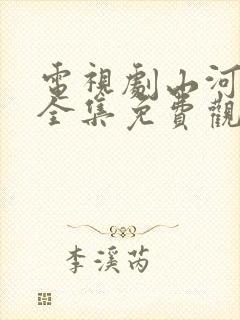 電視劇山河
全集免費觀
李溪芮